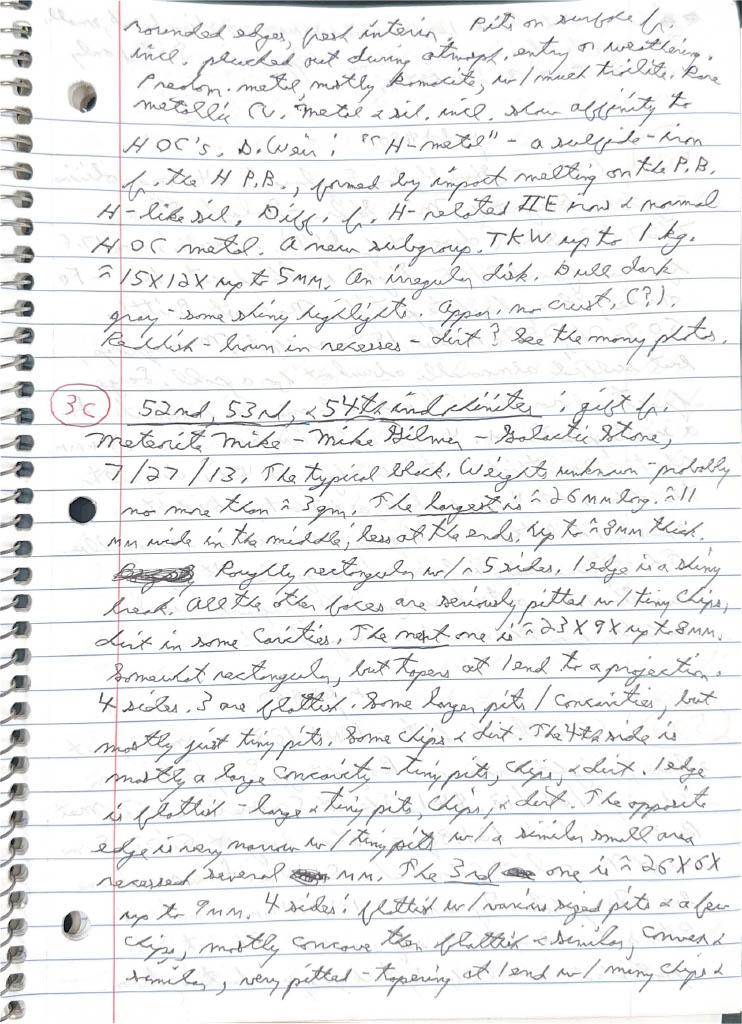 rounded edges, fresh interior. Pits on surface fr.
incl. plucked out during atmosph. entry or weathering.
Predom. metal mostly kamacite, w/ much troilite. Rare
metallic Cu. Metal & sil. incl. show affinity to
H OC's. D. Weir: "H-metal" - a sulfide-iron
fr. the H P.B., formed by impact melting on the P.B.
H-like sil. Diff. fr. H-related IIE iron & normal
H OC metal. A new subgroup. TKW up to 1 kg.
≈ 15 X 12 X up to 5 MM. An irregular disk. Dull dark
gray - some shiny highlights. Appar. no crust, (?).
Reddish-brown in recesses - dirt? See the many photos.
3C 52nd, 53rd, & 54th indochinites: gift fr.
Meteorite Mike - Mike Gilmer - Galactic Stone,
7/27/13. The typical black. Weights unknown - probably
no more than ≈ 3 gm. The largest is ≈ 26 MM long. ≈ 11
MM wide in the middle, less at the ends. Up to ≈ 8 MM thick.
Roughly rectangular w/ ≈ 5 sides. 1 edge is a shiny
break. All the other faces are seriously pitted w/ tiny chips,
dirt in some cavities. The next one is ≈ 23 X 9 X up to 8 MM.
Somewhat rectangular, but tapers at 1 end to a projection.
4 sides. 3 are flattish. Some larger pits / concavities, but
mostly just tiny pits. Some chips & dirt. The 4th side is
mostly a large concavity - tiny pits, chips, & dirt. 1 edge
is flattish - large & tiny pits, chips, & dirt. The opposite
edge is very narrow w/ tiny pits w/ a similar small area
recessed several MM. The 3rd one is ≈ 26 X 6 X
up to 9 MM. 4 sides: flattish w/ various sized pits & a few
chips, mostly concave then flattish & similar, convex &
similar, very pitted - tapering at 1 end w/ many chips &